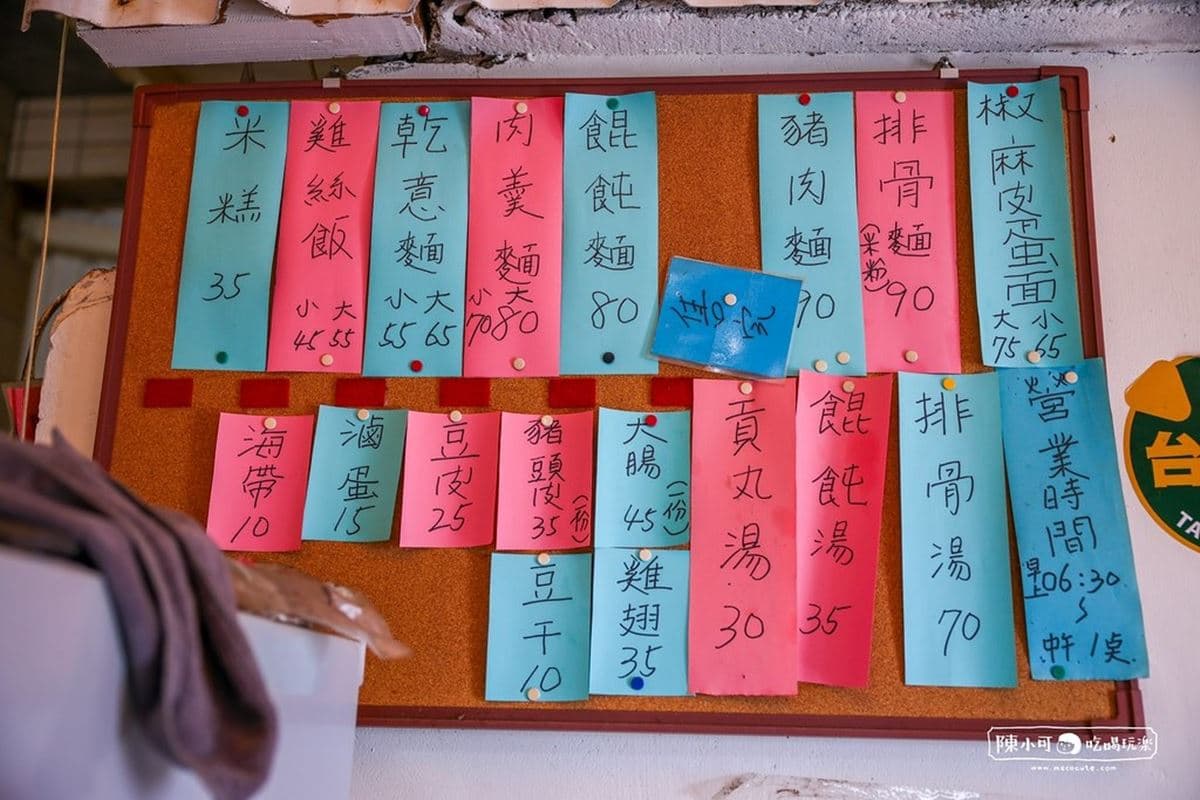 椒麻皮蛋面
大75 小65
排骨麵
(米粉)
90
豬肉麵
90
餛飩麵
80
肉羹麵
小70 大80
乾意麵
小55 大65
雞絲飯
小45 大55
米糕
35
營業時間
早上06:30
~
中午1点
排骨湯
70
餛飩湯
35
貢丸湯
30
大腸
45
(一份)
豬頭皮
35
(一份)
豆皮
25
滷蛋
15
海帶
10
雞翅
35
豆干
10
台
TA
陳小可 吃喝玩樂
www.mecocute.com